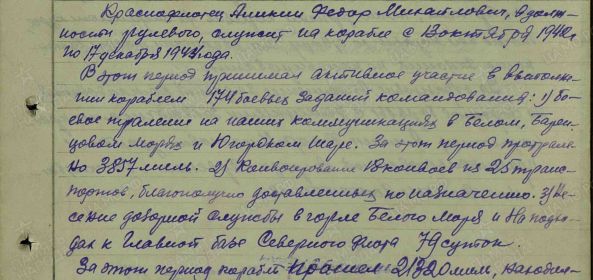 Краснофлотец Аликин Федор Михайлович, в долж-
ности рулевого, служит на корабле с 13 октября 1942г
по 17 декабря 1944 года.
В этот период принимал активное участие в выполне-
нии кораблем 174 боевых заданий командования: 1) Бо-
евое траление на наших коммуникациях в Белом, Барен-
цовом морях и Югорском шаре. За этот период протрале-
но 3857 миль. 2) Конвоирование конвоев из 25 транс-
портов, благополучно доставленных по назначению. 3) Не-
сение дозорной службы в горле Белого Моря и на подхо-
дах к Главной базе Северного флота 79 суток.
За этот период корабль прошел 21320 миль,